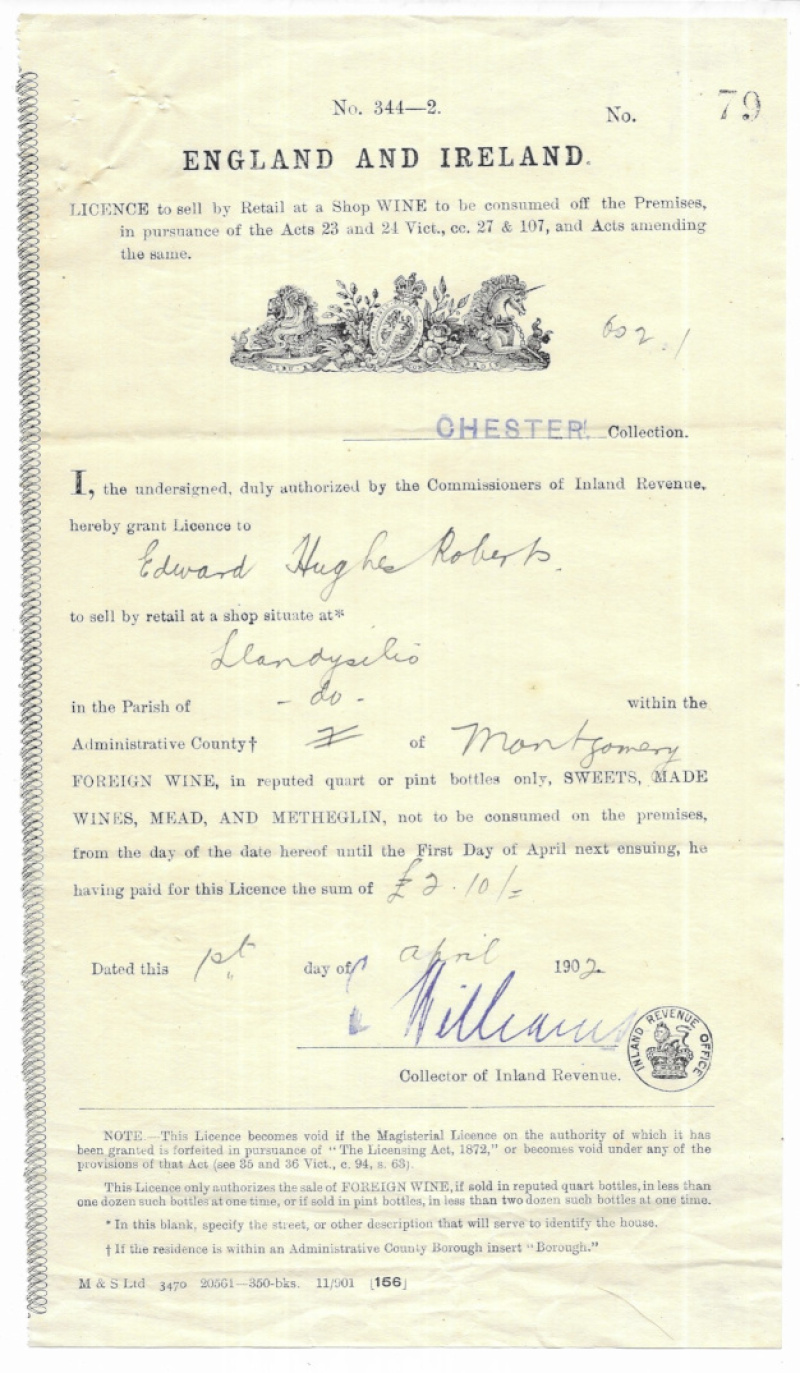 No. 344—2.
No. 79
ENGLAND AND IRELAND.
LICENCE to sell by Retail at a Shop WINE to be consumed off the Premises,
in pursuance of the Acts 23 and 24 Vict., cc. 27 & 107, and Acts amending
the same.
602.1
CHESTER. Collection.
I, the undersigned, duly authorized by the Commissioners of Inland Revenue,
hereby grant Licence to
Edward Hughes Roberts.
to sell by retail at a shop situate at*
Llandysilio
in the Parish of - do - within the
Administrative County† of Montgomery
FOREIGN WINE, in reputed quart or pint bottles only, SWEETS, MADE
WINES, MEAD, AND METHEGLIN, not to be consumed on the premises,
from the day of the date hereof until the First Day of April next ensuing, he
having paid for this Licence the sum of £2.10/=
Dated this 1st day of april 1902
Williams
INLAND REVENUE OFFICE
Collector of Inland Revenue.
NOTE.—This Licence becomes void if the Magisterial Licence on the authority of which it has
been granted is forfeited in pursuance of "The Licensing Act, 1872," or becomes void under any of the
provisions of that Act (see 35 and 36 Vict., c. 94, s. 63).
This Licence only authorizes the sale of FOREIGN WINE, if sold in reputed quart bottles, in less than
one dozen such bottles at one time, or if sold in pint bottles, in less than two dozen such bottles at one time.
* In this blank, specify the street, or other description that will serve to identify the house.
† If the residence is within an Administrative County Borough insert "Borough."
M & S Ltd 3470 20561—350-bks. 11/901 [156]